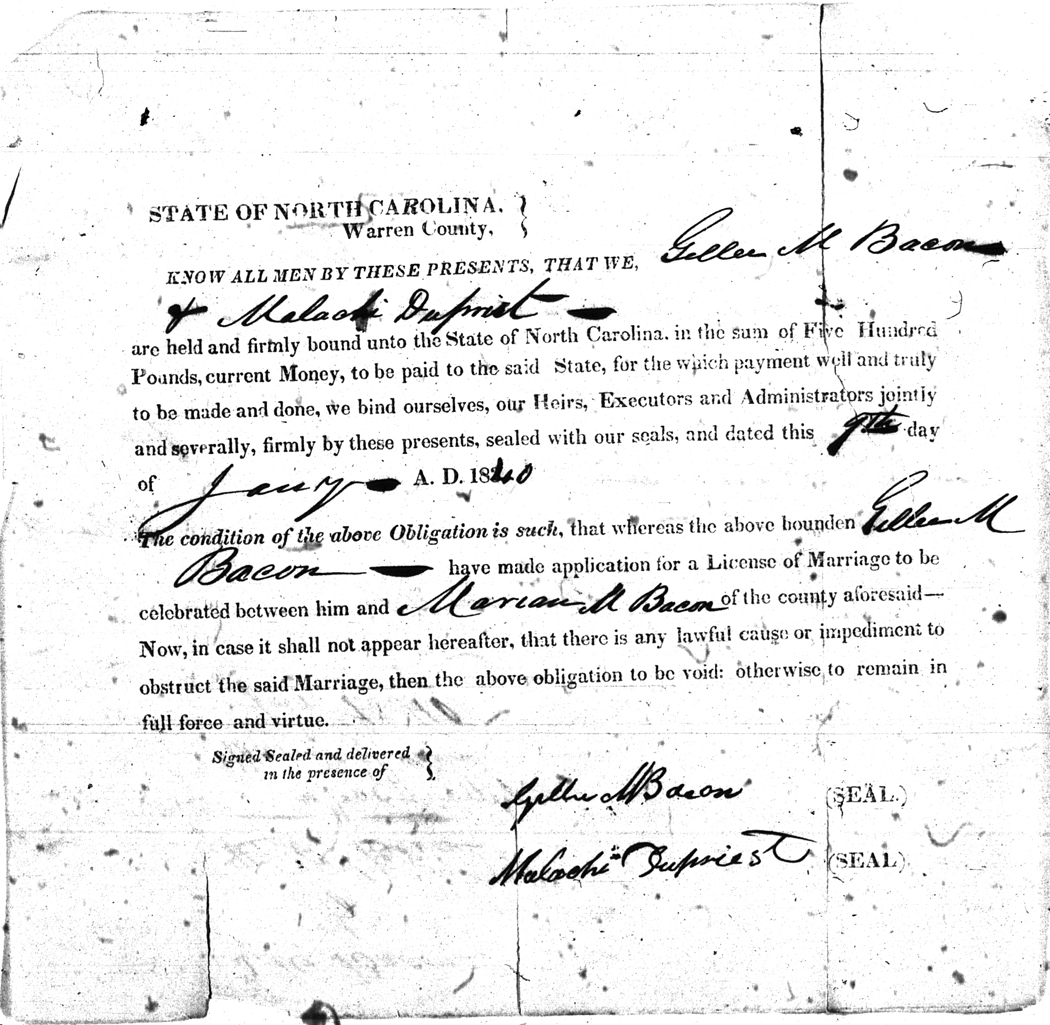 STATE OF NORTH CAROLINA.
Warren County,
KNOW ALL MEN BY THESE PRESENTS, THAT WE, M Bacon
& Malachi Dupriest
are held and firmly bound unto the State of North Carolina. in the sum of Five Hundred
Pounds, current Money, to be paid to the said State, for the which payment well and truly
to be made and done, we bind ourselves, our Heirs, Executors and Administrators jointly
and severally, firmly by these presents, sealed with our seals, and dated this 9th day
of Jany A. D. 1840
The condition of the above Obligation is such, that whereas the above bounden M
Bacon have made application for a License of Marriage to be
celebrated between him and Marian M Bacon of the county aforesaid—
Now, in case it shall not appear hereafter, that there is any lawful cause or impediment to
obstruct the said Marriage, then the above obligation to be void: otherwise to remain in
full force and virtue.
Signed Sealed and delivered
in the presence of
M Bacon (SEAL.)
Malachi Dupriest (SEAL)